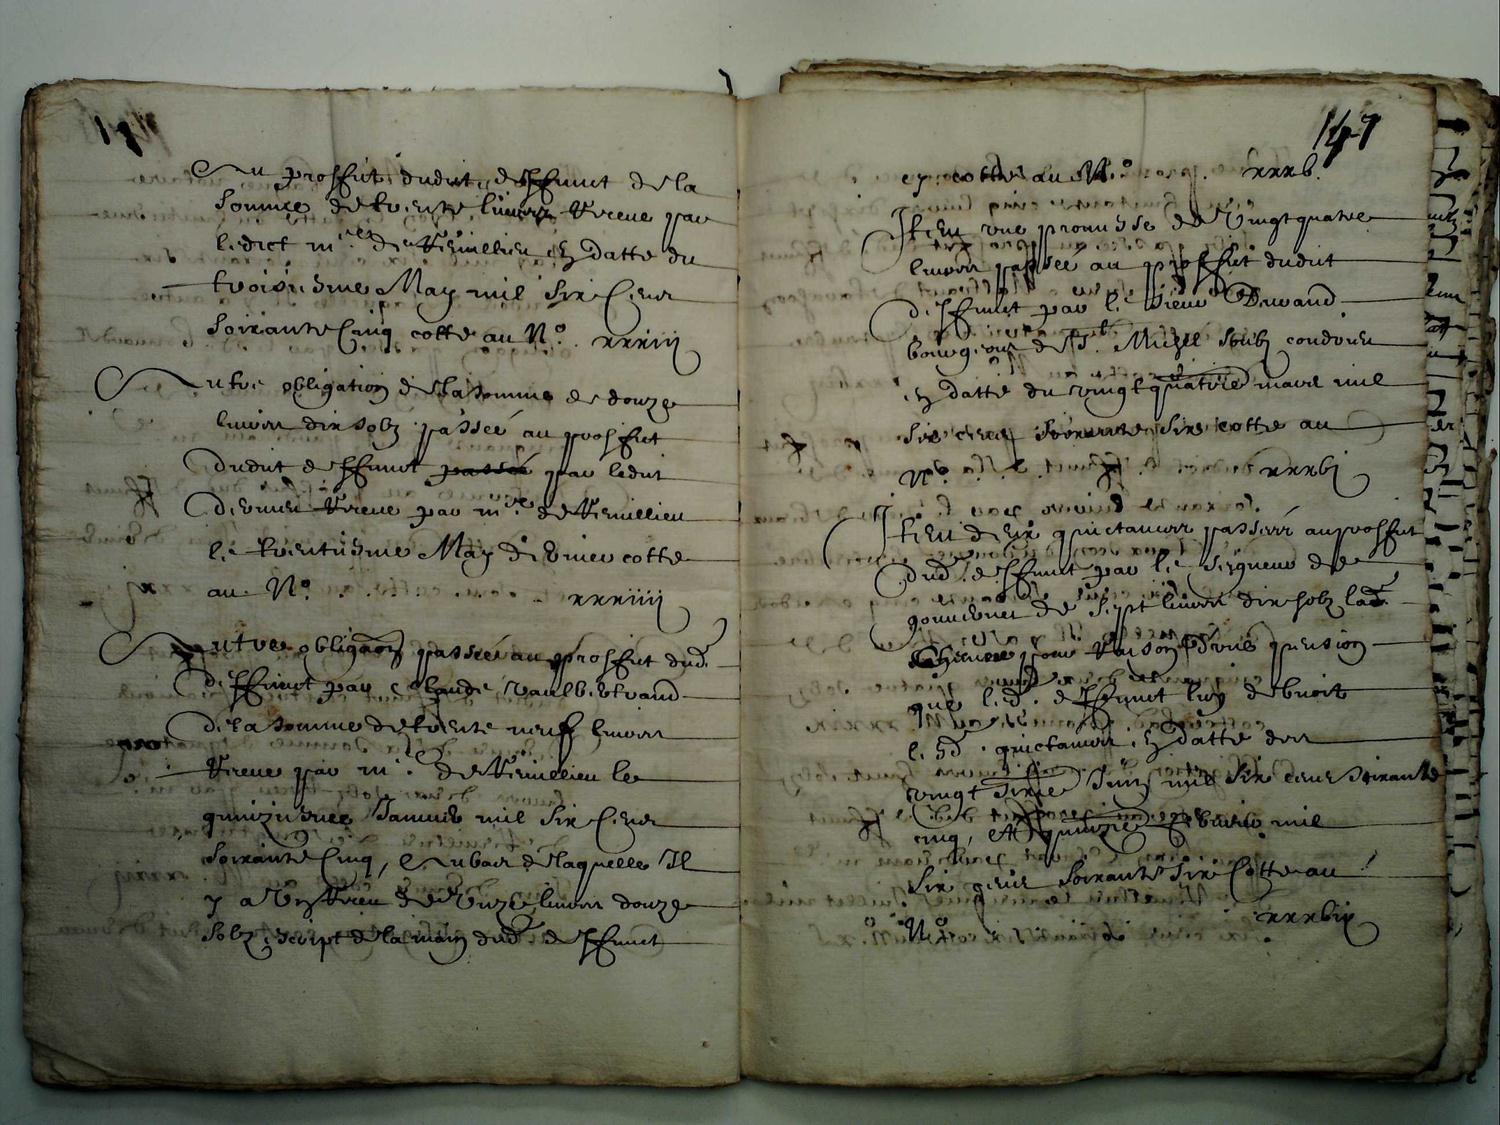 Au proffit dudit deffunct de la
somme de trente livres Receue par
ledict mre de Remillieu en datte du
troisiesme May mil six cens
soixante cinq cotté au No. xxxiii
Autre obligation de la somme de douze
livres dix solz passée au proffit
dudit deffunct par ledit
Receue par mre de Remillieu
le trentiesme May dernier cotte
au No. xxxiiii
Autre obligaon passée au proffit dud.
deffunct par Claude
de la somme de trente neuf livres
Receue par mre de Remilieu le
quinziesme Janvier mil six cens
soixante cinq, Au bas de laquelle Il
y a Un de Unze livres douze
solz, escript de la main dud. deffunct
147
et cotté au No. xxxb.
Item une promesse de Vingt quatre
livres passée au proffit dudit
deffunct par le sieur Durand
bourgeois de St. Michel soubz condrieu
en datte du vingt quatre mars mil
six cens soixante six cotte au
No. xxxbi
Item deux quictances passées au proffit
dud. deffunct par le seigneur de
de Sept livres dix solz lad.
pour Raison d'une pension
que led. deffunct luy debvoit
lesd. quictances en datte des
vingt Juin mil six cens soixante
cinq, et mil
six cens soixante six Cotté au
No. xxxbii